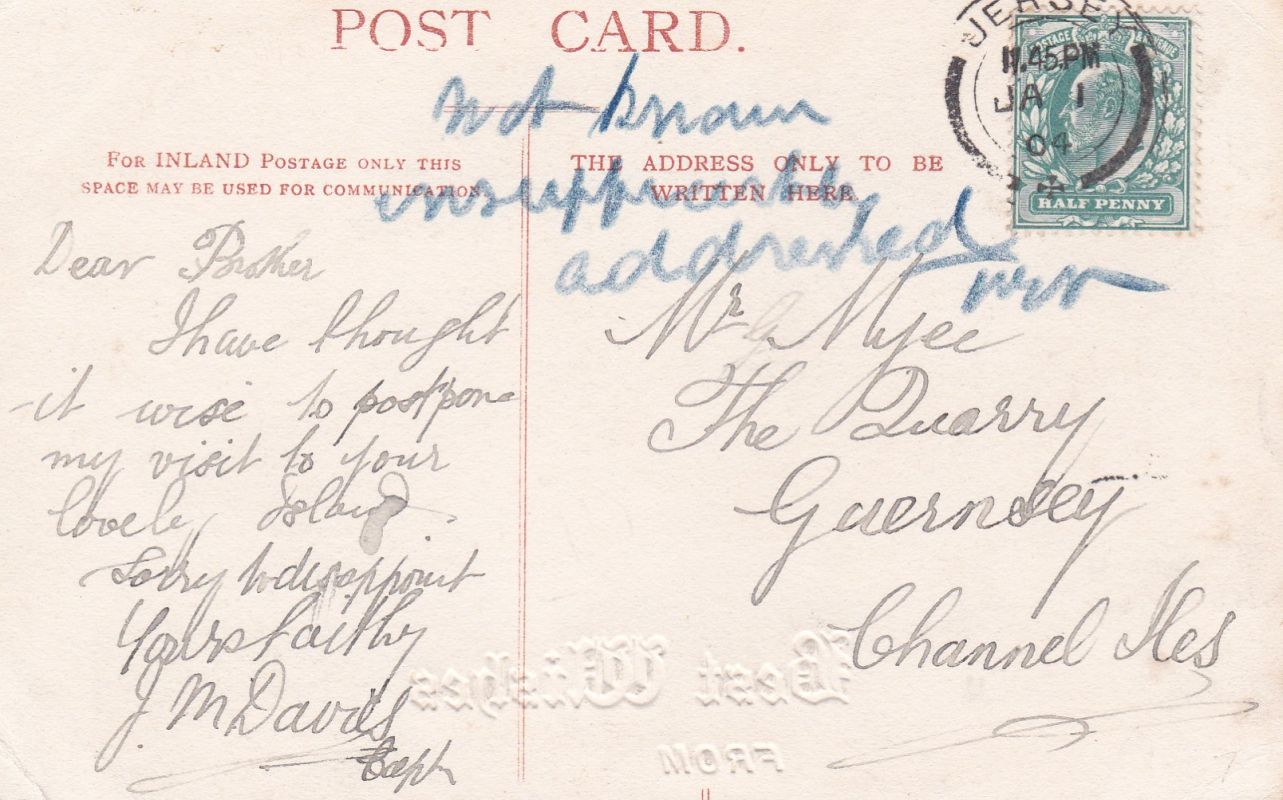 POST CARD.
JERSEY
11.45PM
JA 1
04
POSTAGE REVENUE
HALF PENNY
not known
addressed
For INLAND Postage only this
space may be used for communication
THE ADDRESS ONLY TO BE
WRITTEN HERE.
Dear Brother
I have thought
it wise to postpone
my visit to your
lovely Island.
Sorry to disappoint
Yours faithy
J M Davis
Capt
Mr
The Quarry
Guernsey
Channel Iles
Best Wishes
FROM